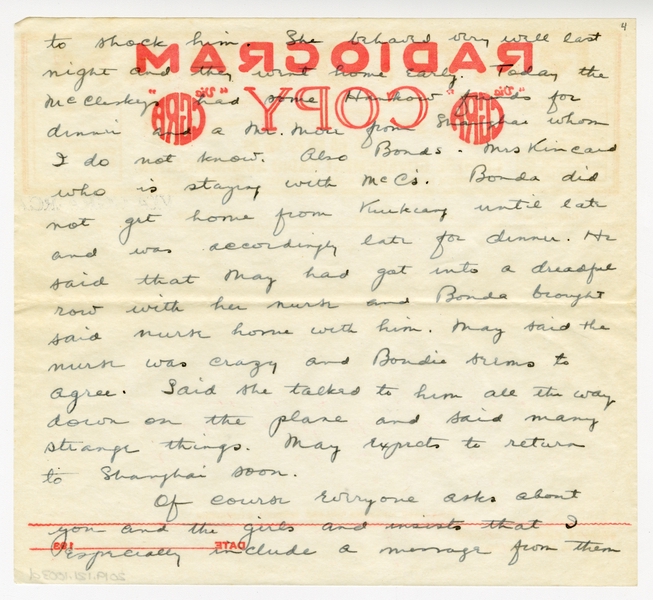 4
to shock him. She behaved very well last
night and they went home early. Today the
McCleskeys had some Hankow friends for
dinner and a Mr. More from Shanghai whom
I do not know. Also Bonds. Mrs Kincaid
who is staying with McC's. Bonda did
not get home from Kiukiang until late
and was accordingly late for dinner. He
said that May had got into a dreadful
row with her nurse and Bonda brought
said nurse home with him. May said the
nurse was crazy and Bondie seems to
agree. Said she talked to him all the way
down on the plane and said many
strange things. May expects to return
to Shanghai soon.
Of course everyone asks about
you and the girls and insists that I
especially include a message from them
RADIOGRAM
"Via CGRA" COPY "Via CGRA"
DATE 193
2019.121.1003d